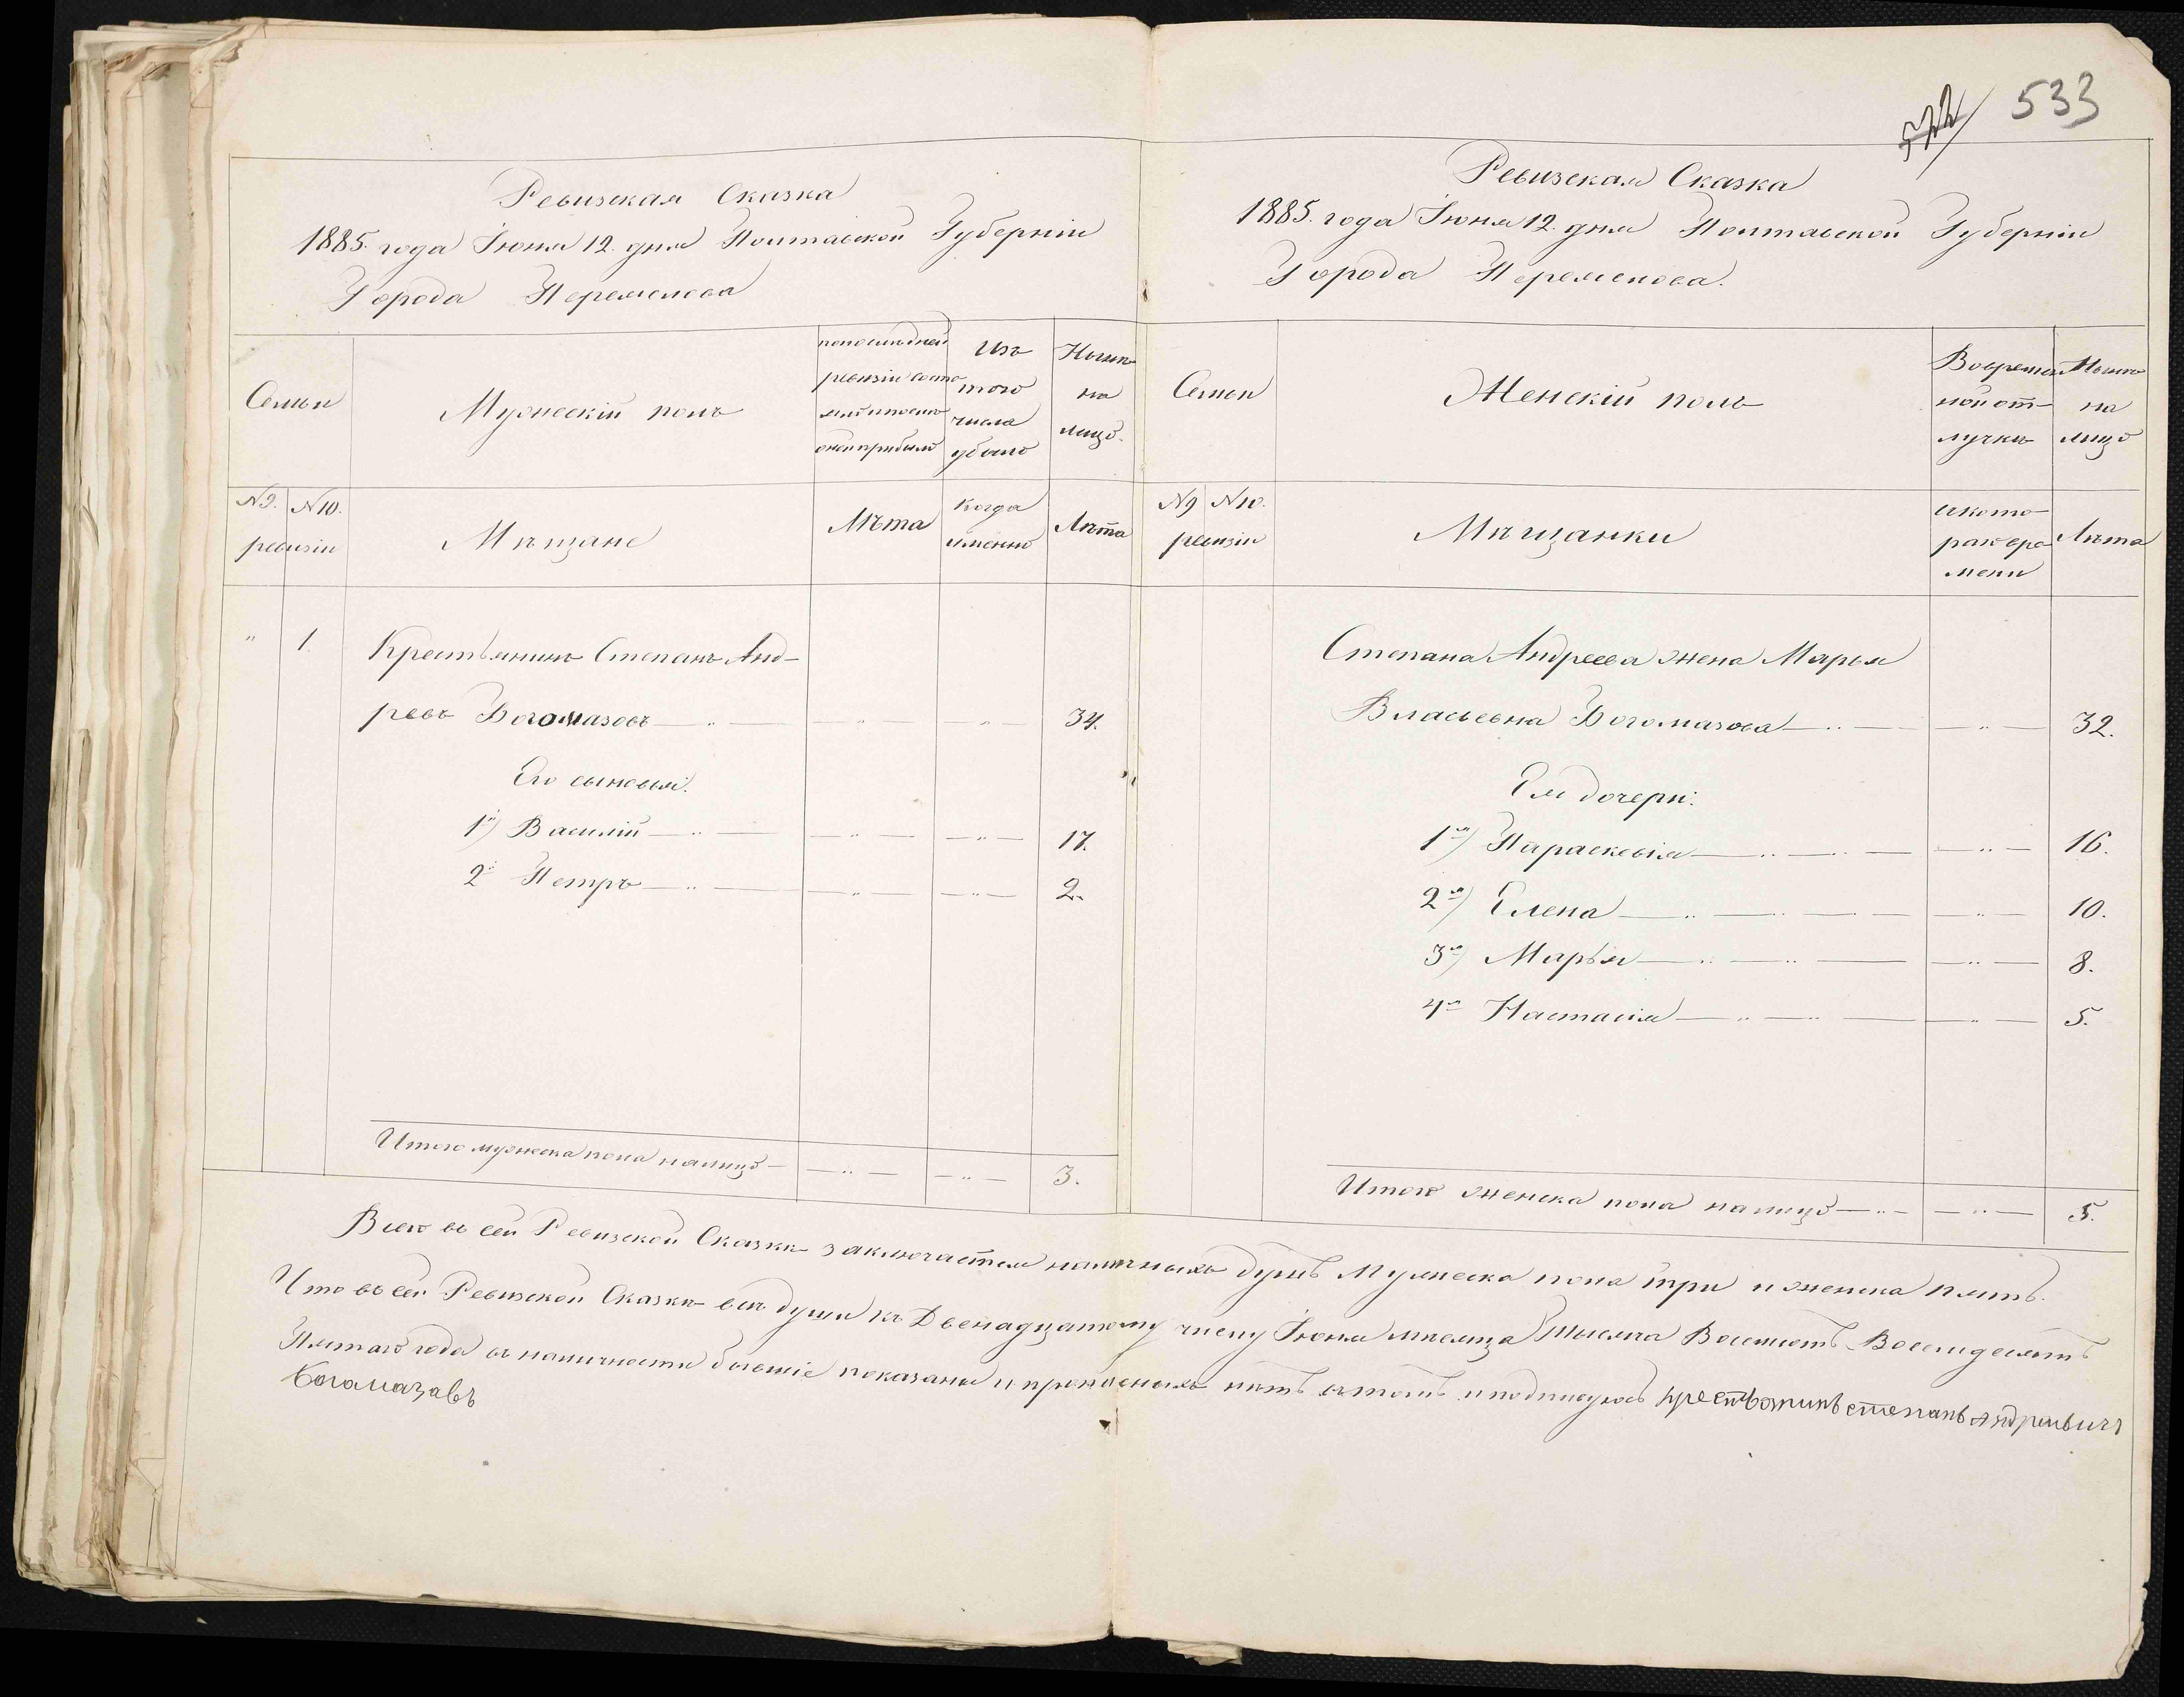 533
Ревизская Сказка
1885. года Іюня 12. дня Полтавской Губерніи
Города Переяслова
Семьи
Мужескій полъ
по последней
ревизіи состо
яло и после
оной прибыло
Изъ
того
числа
убыло
Нынѣ
на
лицо.
№ 9. № 10.
ревизіи
Мѣщане
Лѣта
когда
именно
Лѣта
" 1. Крестьянинъ Степанъ Анд-
реевъ Богомазовъ — " — — " — — " — 34.
Его сыновья:
1й) Василій — " — — " — — " — 17.
2й Петръ — " — — " — — " — 2.
Итого мужеска пола налицо — — " — — " — 3.
Ревизская Сказка
1885. года Іюня 12. дня Полтавской Губерніи
Города Переяслова.
Семьи
Женскій полъ
Во времен
ной от-
лучкѣ
Нынѣ
на
лицо
№ 9 № 10.
ревизіи
Мѣщанки
и кото-
раго вре-
мени
Лѣта
Степана Андреева жена Марья
Власьевна Богомазова — " — — " — 32.
Ея дочери:
1я) Параскевія — " — " — — " — 16.
2я) Елена — " — " — — " — 10.
3я) Марья — " — " — — " — 8.
4я Настасія — " — " — — " — 5.
Итого женска пола налицо — " — — " — 5.
Всего въ сей Ревизской Сказкѣ заключается наличныхъ душъ Мужеска пола три и женска пять.
Что въ сей Ревизской Сказкѣ всѣ души къ Двенадцатому числу Іюня мѣсяца Тысяча Восемсотъ Восемдесятъ
Пятаго года въ наличности бывшіе показаны и прописныхъ нѣтъ въ томъ и подписуюсь крестьянинъ степанъ Андреивичъ
Богамазавъ